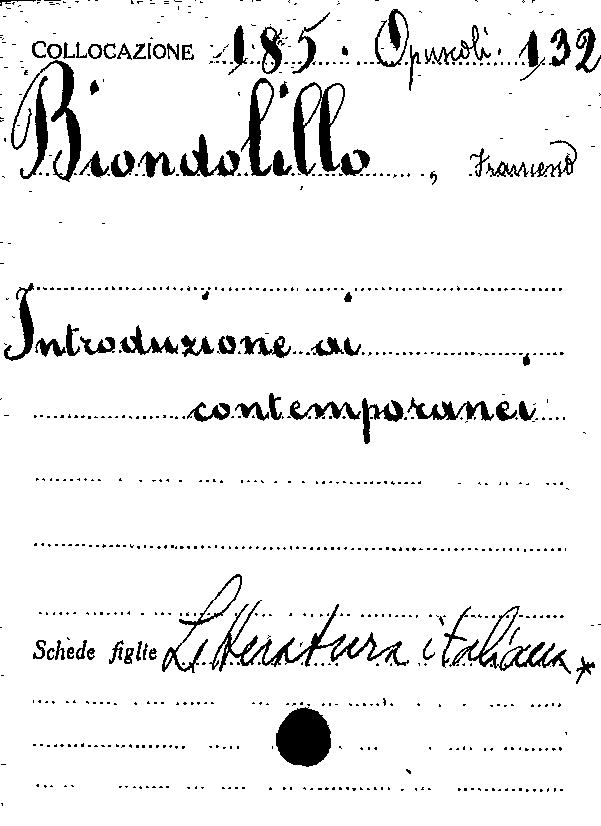 COLLOCAZIONE 185. Opuscoli. 132
Biondolillo, Francesco
Introduzione ai
contemporanei
Schede figlie Litteratura italiana *